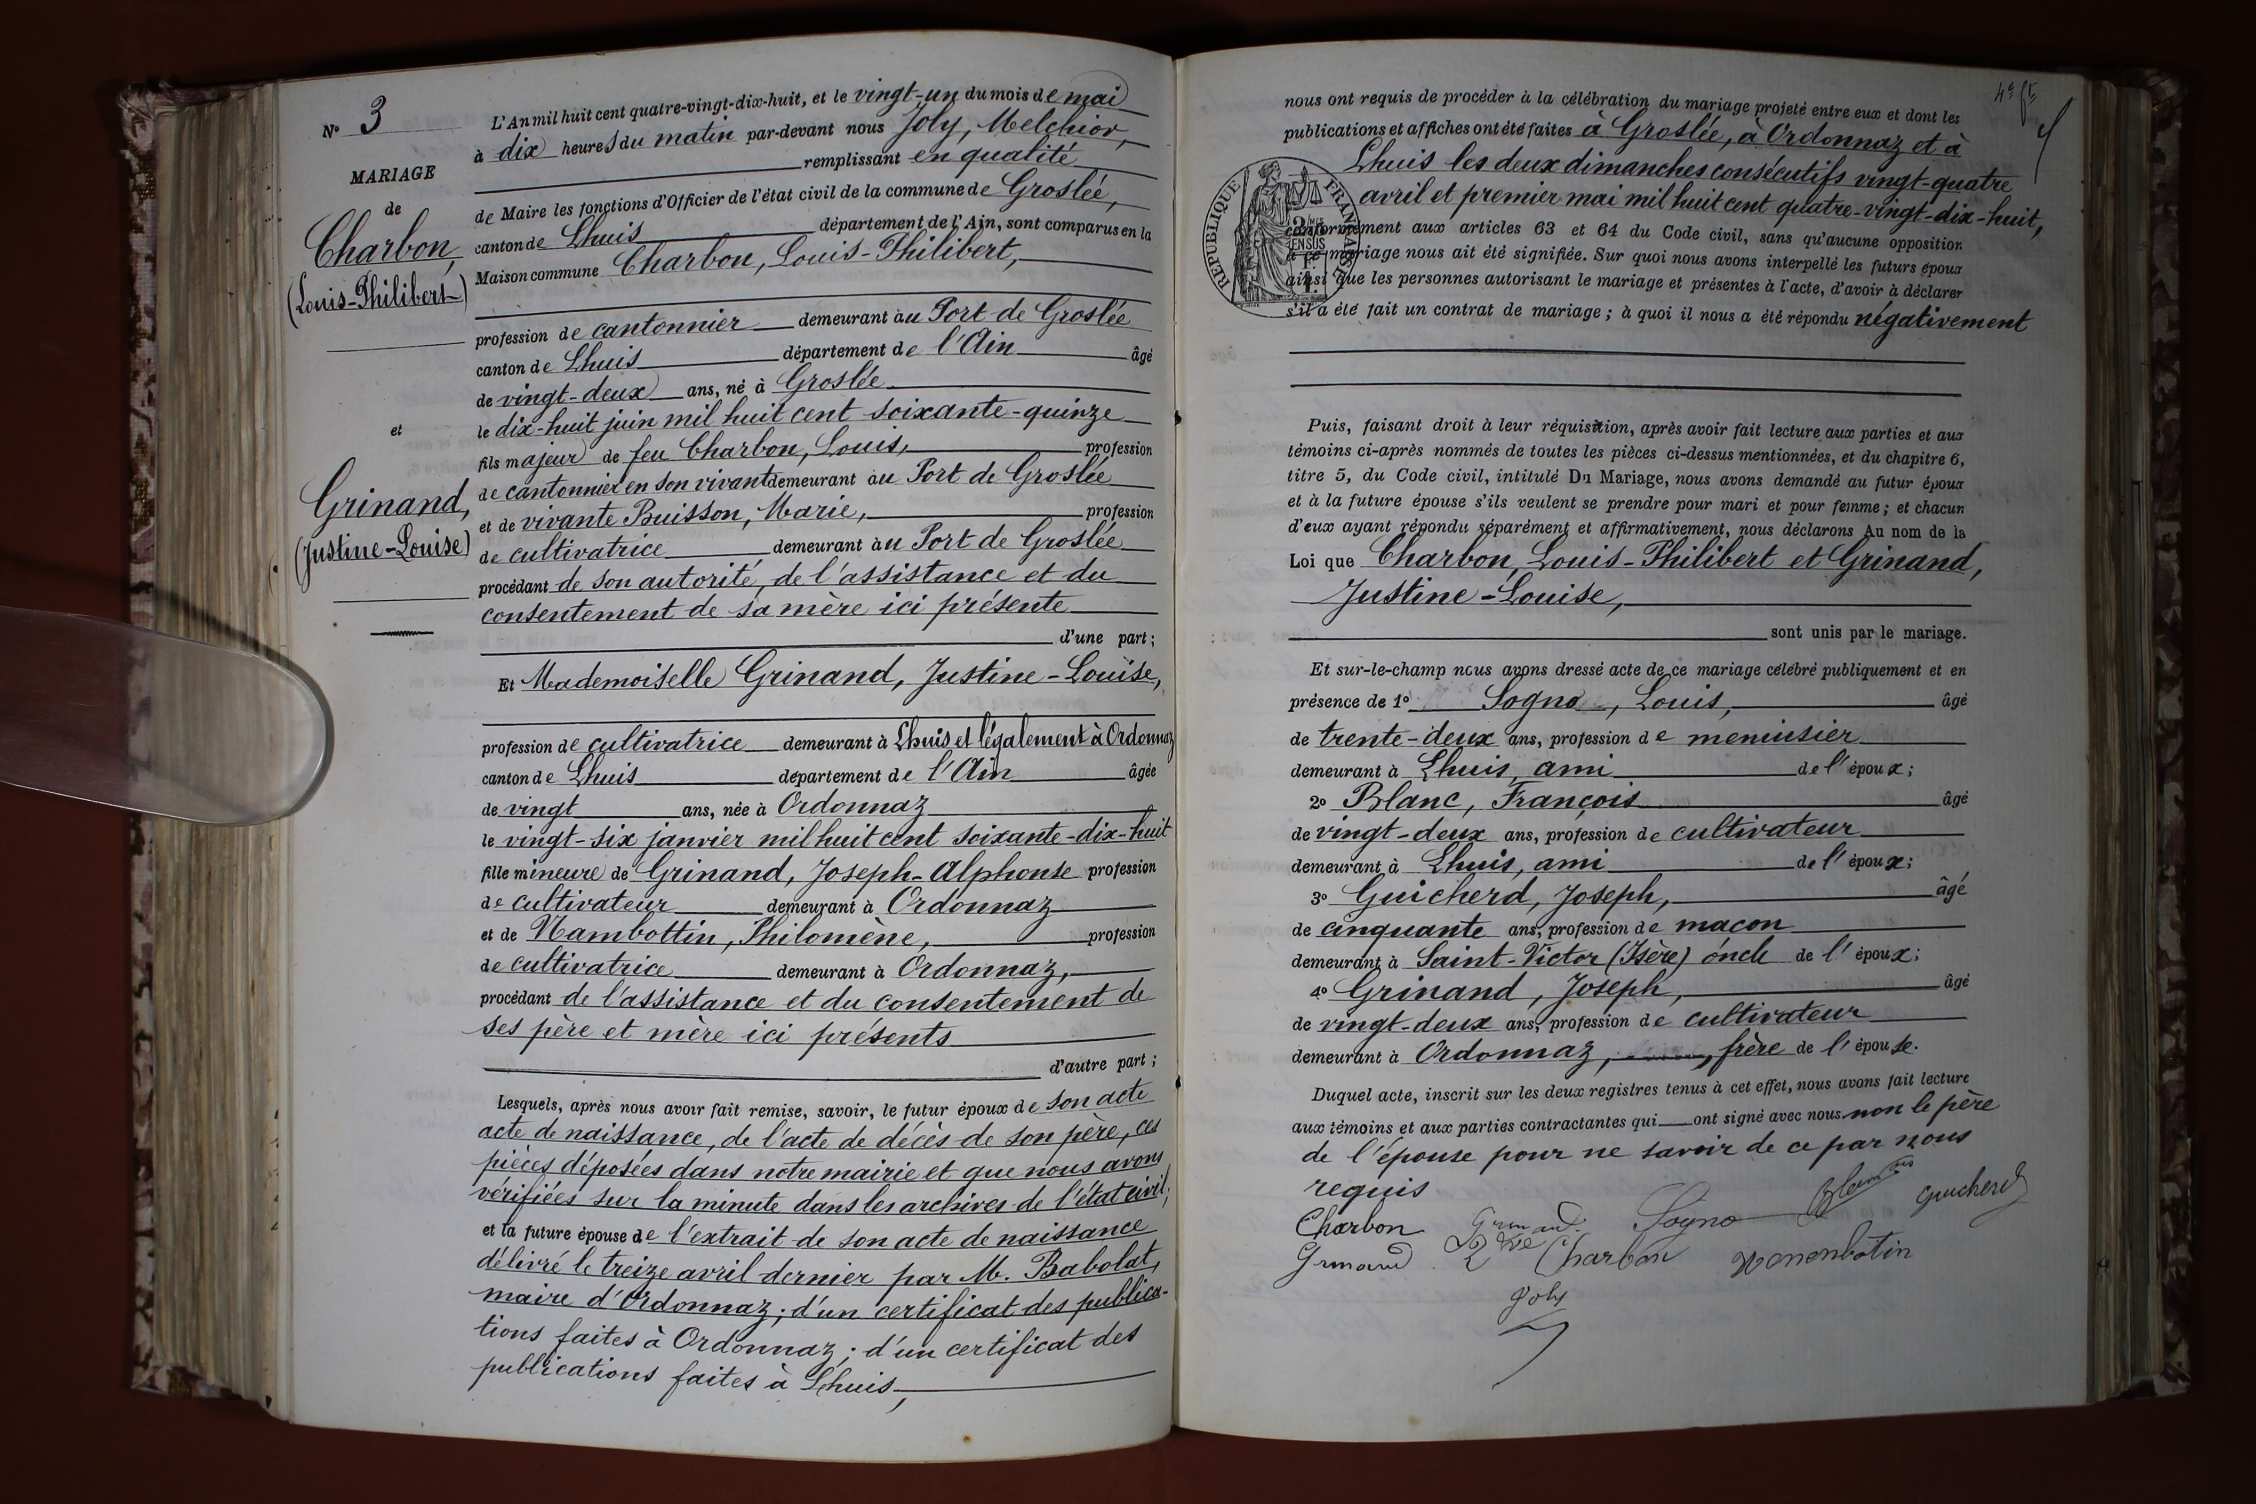 N° 3
MARIAGE
de
Charbon,
(Louis-Philibert)
et
Grinand,
(Justine-Louise)
L'An mil huit cent quatre-vingt-dix-huit, et le vingt-un du mois de mai
à dix heures du matin par-devant nous Joly, Melchior,
remplissant en qualité
de Maire les fonctions d'Officier de l'état civil de la commune de Groslée,
canton de Lhuis département de l'Ain, sont comparus en la
Maison commune Charbon, Louis-Philibert,
profession de cantonnier demeurant au Port de Groslée
canton de Lhuis département de l'Ain âgé
de vingt-deux ans, né à Groslée
le dix-huit juin mil huit cent soixante-quinze
fils majeur de feu Charbon, Louis, profession
de cantonnier en son vivant demeurant au Port de Groslée
et de vivante Buisson, Marie, profession
de cultivatrice demeurant au Port de Groslée
procédant de son autorité, de l'assistance et du
consentement de sa mère ici présente
d'une part;
Et Mademoiselle Grinand, Justine-Louise,
profession de cultivatrice demeurant à Lhuis et légalement à Ordonnaz
canton de Lhuis département de l'Ain âgée
de vingt ans, née à Ordonnaz
le vingt-six janvier mil huit cent soixante-dix-huit
fille mineure de Grinand, Joseph-Alphonse profession
de cultivateur demeurant à Ordonnaz
et de Nambottin, Philomène, profession
de cultivatrice demeurant à Ordonnaz,
procédant de l'assistance et du consentement de
ses père et mère ici présents
d'autre part;
Lesquels, après nous avoir fait remise, savoir, le futur époux de son acte
acte de naissance, de l'acte de décès de son père, ces
pièces déposées dans notre mairie et que nous avons
vérifiées sur la minute dans les archives de l'état civil;
et la future épouse de l'extrait de son acte de naissance
délivré le treize avril dernier par M. Babolat,
maire d'Ordonnaz; d'un certificat des publica-
tions faites à Ordonnaz; d'un certificat des
publications faites à Lhuis,
nous ont requis de procéder à la célébration du mariage projeté entre eux et dont les
publications et affiches ont été faites à Groslée, à Ordonnaz et à
Lhuis les deux dimanches consécutifs vingt-quatre
avril et premier mai mil huit cent quatre-vingt-dix-huit,
conformément aux articles 63 et 64 du Code civil, sans qu'aucune opposition
à ce mariage nous ait été signifiée. Sur quoi nous avons interpellé les futurs époux
ainsi que les personnes autorisant le mariage et présentes à l'acte, d'avoir à déclarer
s'il a été fait un contrat de mariage; à quoi il nous a été répondu négativement
RÉPUBLIQUE FRANÇAISE
Puis, faisant droit à leur réquisition, après avoir fait lecture aux parties et aux
témoins ci-après nommés de toutes les pièces ci-dessus mentionnées, et du chapitre 6,
titre 5, du Code civil, intitulé Du Mariage, nous avons demandé au futur époux
et à la future épouse s'ils veulent se prendre pour mari et pour femme; et chacun
d'eux ayant répondu séparément et affirmativement, nous déclarons Au nom de la
Loi que Charbon, Louis-Philibert et Grinand,
Justine-Louise,
sont unis par le mariage.
Et sur-le-champ nous avons dressé acte de ce mariage célébré publiquement et en
présence de 1° Sogno, Louis, âgé
de trente-deux ans, profession de menuisier
demeurant à Lhuis, ami de l'époux;
2° Blanc, François âgé
de vingt-deux ans, profession de cultivateur
demeurant à Lhuis, ami de l'époux;
3° Guicherd, Joseph, âgé
de cinquante ans, profession de maçon
demeurant à Saint-Victor (Isère) oncle de l'époux;
4° Grinand, Joseph, âgé
de vingt-deux ans, profession de cultivateur
demeurant à Ordonnaz, frère de l'épouse.
Duquel acte, inscrit sur les deux registres tenus à cet effet, nous avons fait lecture
aux témoins et aux parties contractantes qui ont signé avec nous non le père
de l'épouse pour ne savoir de ce par nous
requis
Charbon Grinand Sogno Guicherd
Grinand Vve Charbon
Joly